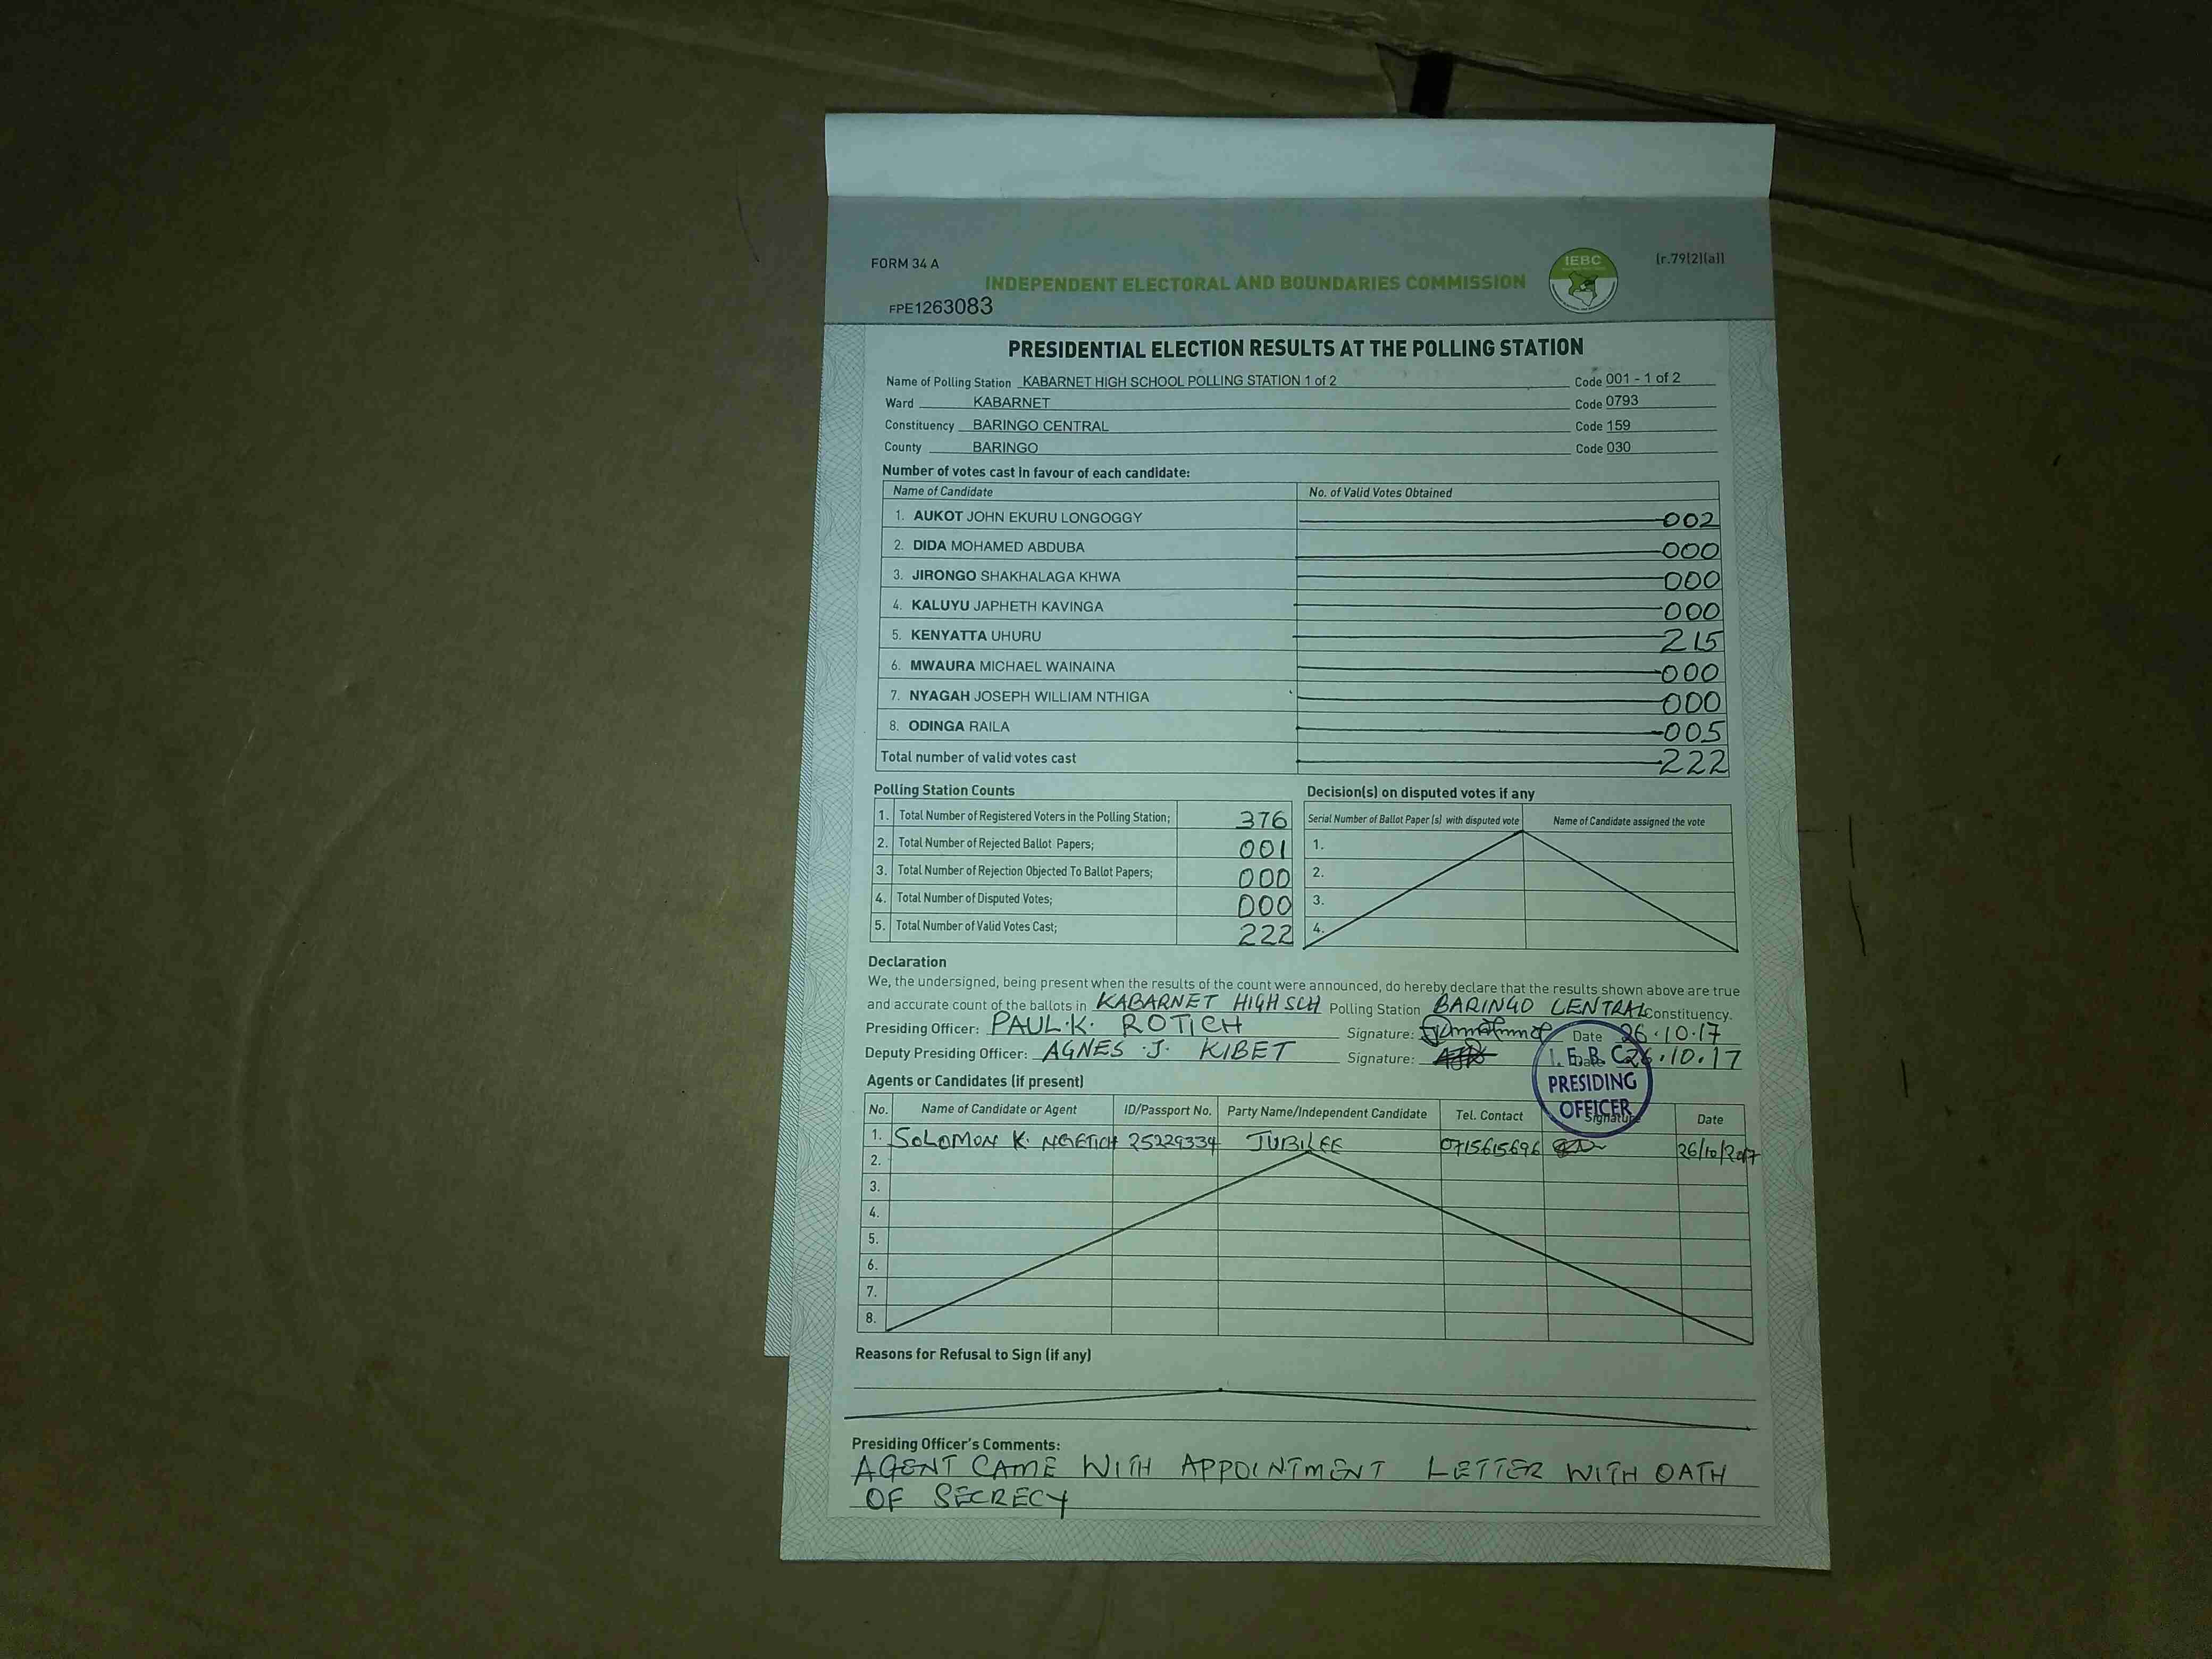 FORM 34 A
(r.79(2)(a))
IEBC
INDEPENDENT ELECTORAL AND BOUNDARIES COMMISSION
FPE1263083
PRESIDENTIAL ELECTION RESULTS AT THE POLLING STATION
Name of Polling Station KABARNET HIGH SCHOOL POLLING STATION 1 of 2 Code 001 - 1 of 2
Ward KABARNET Code 0793
Constituency BARINGO CENTRAL Code 159
County BARINGO Code 030
Number of votes cast in favour of each candidate:
Name of Candidate No. of Valid Votes Obtained
1. AUKOT JOHN EKURU LONGOGGY 002
2. DIDA MOHAMED ABDUBA 000
3. JIRONGO SHAKHALAGA KHWA 000
4. KALUYU JAPHETH KAVINGA 000
5. KENYATTA UHURU 215
6. MWAURA MICHAEL WAINAINA 000
7. NYAGAH JOSEPH WILLIAM NTHIGA 000
8. ODINGA RAILA 005
Total number of valid votes cast 222
Polling Station Counts
1. Total Number of Registered Voters in the Polling Station; 376
2. Total Number of Rejected Ballot Papers; 001
3. Total Number of Rejection Objected To Ballot Papers; 000
4. Total Number of Disputed Votes; 000
5. Total Number of Valid Votes Cast; 222
Decision(s) on disputed votes if any
Serial Number of Ballot Paper (s) with disputed vote Name of Candidate assigned the vote
1.
2.
3.
4.
Declaration
We, the undersigned, being present when the results of the count were announced, do hereby declare that the results shown above are true
and accurate count of the ballots in KABARNET HIGH SCH Polling Station BARINGO CENTRAL Constituency.
Presiding Officer: PAUL.K. ROTICH Signature: Date 26.10.17
Deputy Presiding Officer: AGNES .J. KIBET Signature: Date 26.10.17
I. E. B. C
PRESIDING
OFFICER
Agents or Candidates (if present)
No. Name of Candidate or Agent ID/Passport No. Party Name/Independent Candidate Tel. Contact Signature Date
1. SOLOMON K. NGETICH 25229334 JUBILEE 0715615696 26/10/2017
2.
3.
4.
5.
6.
7.
8.
Reasons for Refusal to Sign (if any)
Presiding Officer's Comments:
AGENT CAME WITH APPOINTMENT LETTER WITH OATH
OF SECRECY